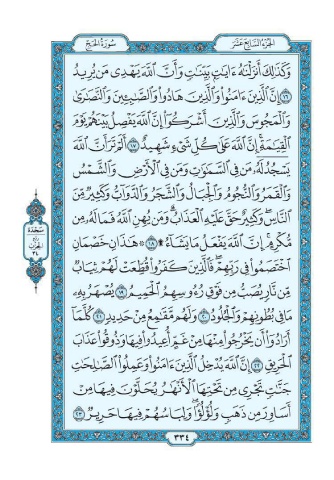 سُورَةُ الحَجّ
الجُزْءُ السَّابِعَ عَشَرَ
وَكَذَٰلِكَ أَنزَلْنَٰهُ ءَايَٰتٍۭ بَيِّنَٰتٍ وَأَنَّ ٱللَّهَ يَهْدِى مَن يُرِيدُ
﴿١٦﴾ إِنَّ ٱلَّذِينَ ءَامَنُوا۟ وَٱلَّذِينَ هَادُوا۟ وَٱلصَّٰبِـِٔينَ وَٱلنَّصَٰرَىٰ
وَٱلْمَجُوسَ وَٱلَّذِينَ أَشْرَكُوٓا۟ إِنَّ ٱللَّهَ يَفْصِلُ بَيْنَهُمْ يَوْمَ
ٱلْقِيَٰمَةِ إِنَّ ٱللَّهَ عَلَىٰ كُلِّ شَىْءٍ شَهِيدٌ ﴿١٧﴾ أَلَمْ تَرَ أَنَّ ٱللَّهَ
يَسْجُدُ لَهُۥ مَن فِى ٱلسَّمَٰوَٰتِ وَمَن فِى ٱلْأَرْضِ وَٱلشَّمْسُ
وَٱلْقَمَرُ وَٱلنُّجُومُ وَٱلْجِبَالُ وَٱلشَّجَرُ وَٱلدَّوَآبُّ وَكَثِيرٌ مِّنَ
ٱلنَّاسِ وَكَثِيرٌ حَقَّ عَلَيْهِ ٱلْعَذَابُ وَمَن يُهِنِ ٱللَّهُ فَمَا لَهُۥ مِن
مُّكْرِمٍ إِنَّ ٱللَّهَ يَفْعَلُ مَا يَشَآءُ ۩ ﴿١٨﴾ هَٰذَانِ خَصْمَانِ
ٱخْتَصَمُوا۟ فِى رَبِّهِمْ فَٱلَّذِينَ كَفَرُوا۟ قُطِّعَتْ لَهُمْ ثِيَابٌ
مِّن نَّارٍ يُصَبُّ مِن فَوْقِ رُءُوسِهِمُ ٱلْحَمِيمُ ﴿١٩﴾ يُصْهَرُ بِهِۦ
مَا فِى بُطُونِهِمْ وَٱلْجُلُودُ ﴿٢٠﴾ وَلَهُم مَّقَٰمِعُ مِنْ حَدِيدٍ ﴿٢١﴾ كُلَّمَآ
أَرَادُوٓا۟ أَن يَخْرُجُوا۟ مِنْهَا مِنْ غَمٍّ أُعِيدُوا۟ فِيهَا وَذُوقُوا۟ عَذَابَ
ٱلْحَرِيقِ ﴿٢٢﴾ إِنَّ ٱللَّهَ يُدْخِلُ ٱلَّذِينَ ءَامَنُوا۟ وَعَمِلُوا۟ ٱلصَّٰلِحَٰتِ
جَنَّٰتٍ تَجْرِى مِن تَحْتِهَا ٱلْأَنْهَٰرُ يُحَلَّوْنَ فِيهَا مِنْ
أَسَاوِرَ مِن ذَهَبٍ وَلُؤْلُؤًا وَلِبَاسُهُمْ فِيهَا حَرِيرٌ ﴿٢٣﴾
سَجْدَة
٣٣٤